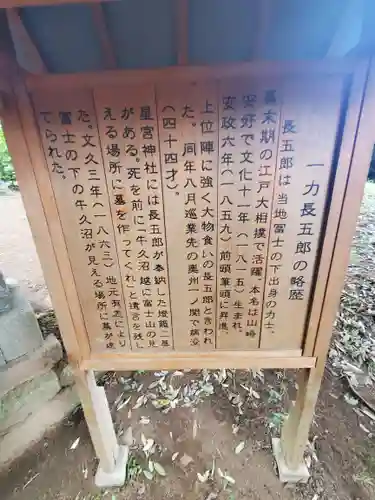 一力長五郎の略歴
長五郎は当地冨士の下出身の力士、
幕末期の江戸大相撲で活躍、本名は山﨑
安好で文化十一年（一八一五）生まれ、
安政六年（一八五九）前頭筆頭に昇進、
上位陣に強く大物食いの長五郎と言われ
た。同年八月巡業先の奥州一ノ関で病没
（四十四才）。
星宮神社には長五郎が奉納した燈籠一基
がある。死を前に「牛久沼越に富士山の見
える場所に墓を作ってくれ」と遺言を残し
た。文久三年（一八六三）地元有志により
冨士の下の牛久沼が見える場所に墓が建
てられた。